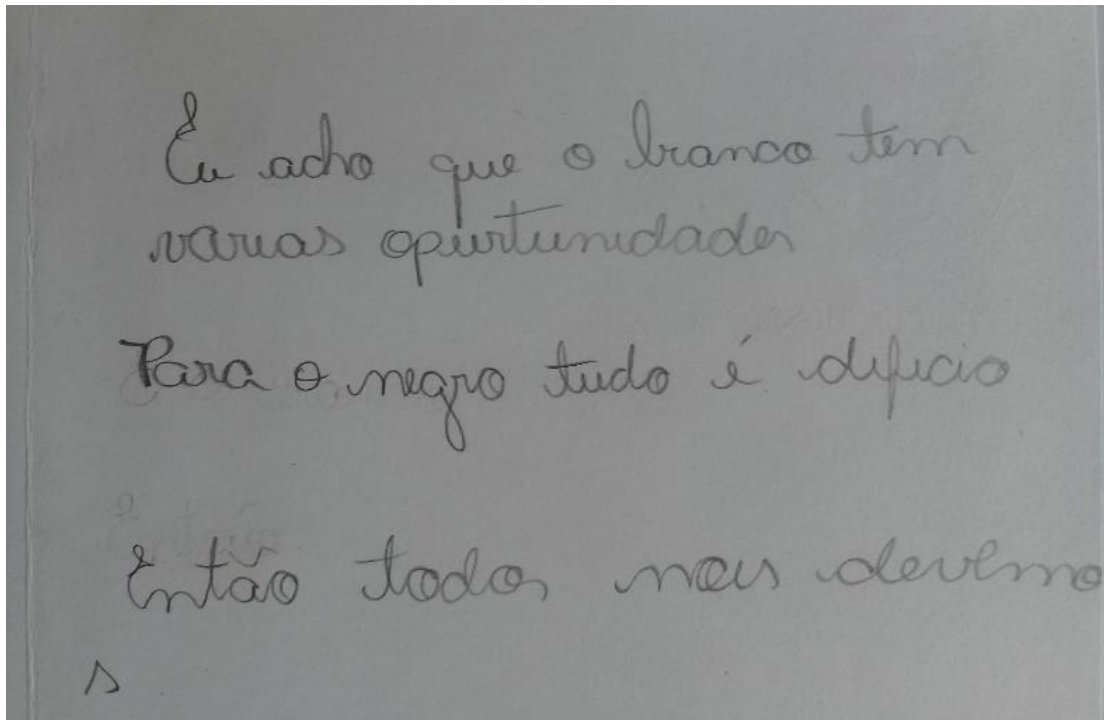 Eu acho que o branco tem
varias opurtunidades
Para o negro tudo é dificio
Então todos nois devemo
s